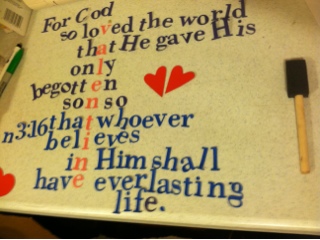 For God
so loved the world
that He gave His
only
begotten
son so
n3:16 that whoever
believes
in Him shall
have everlasting
life.